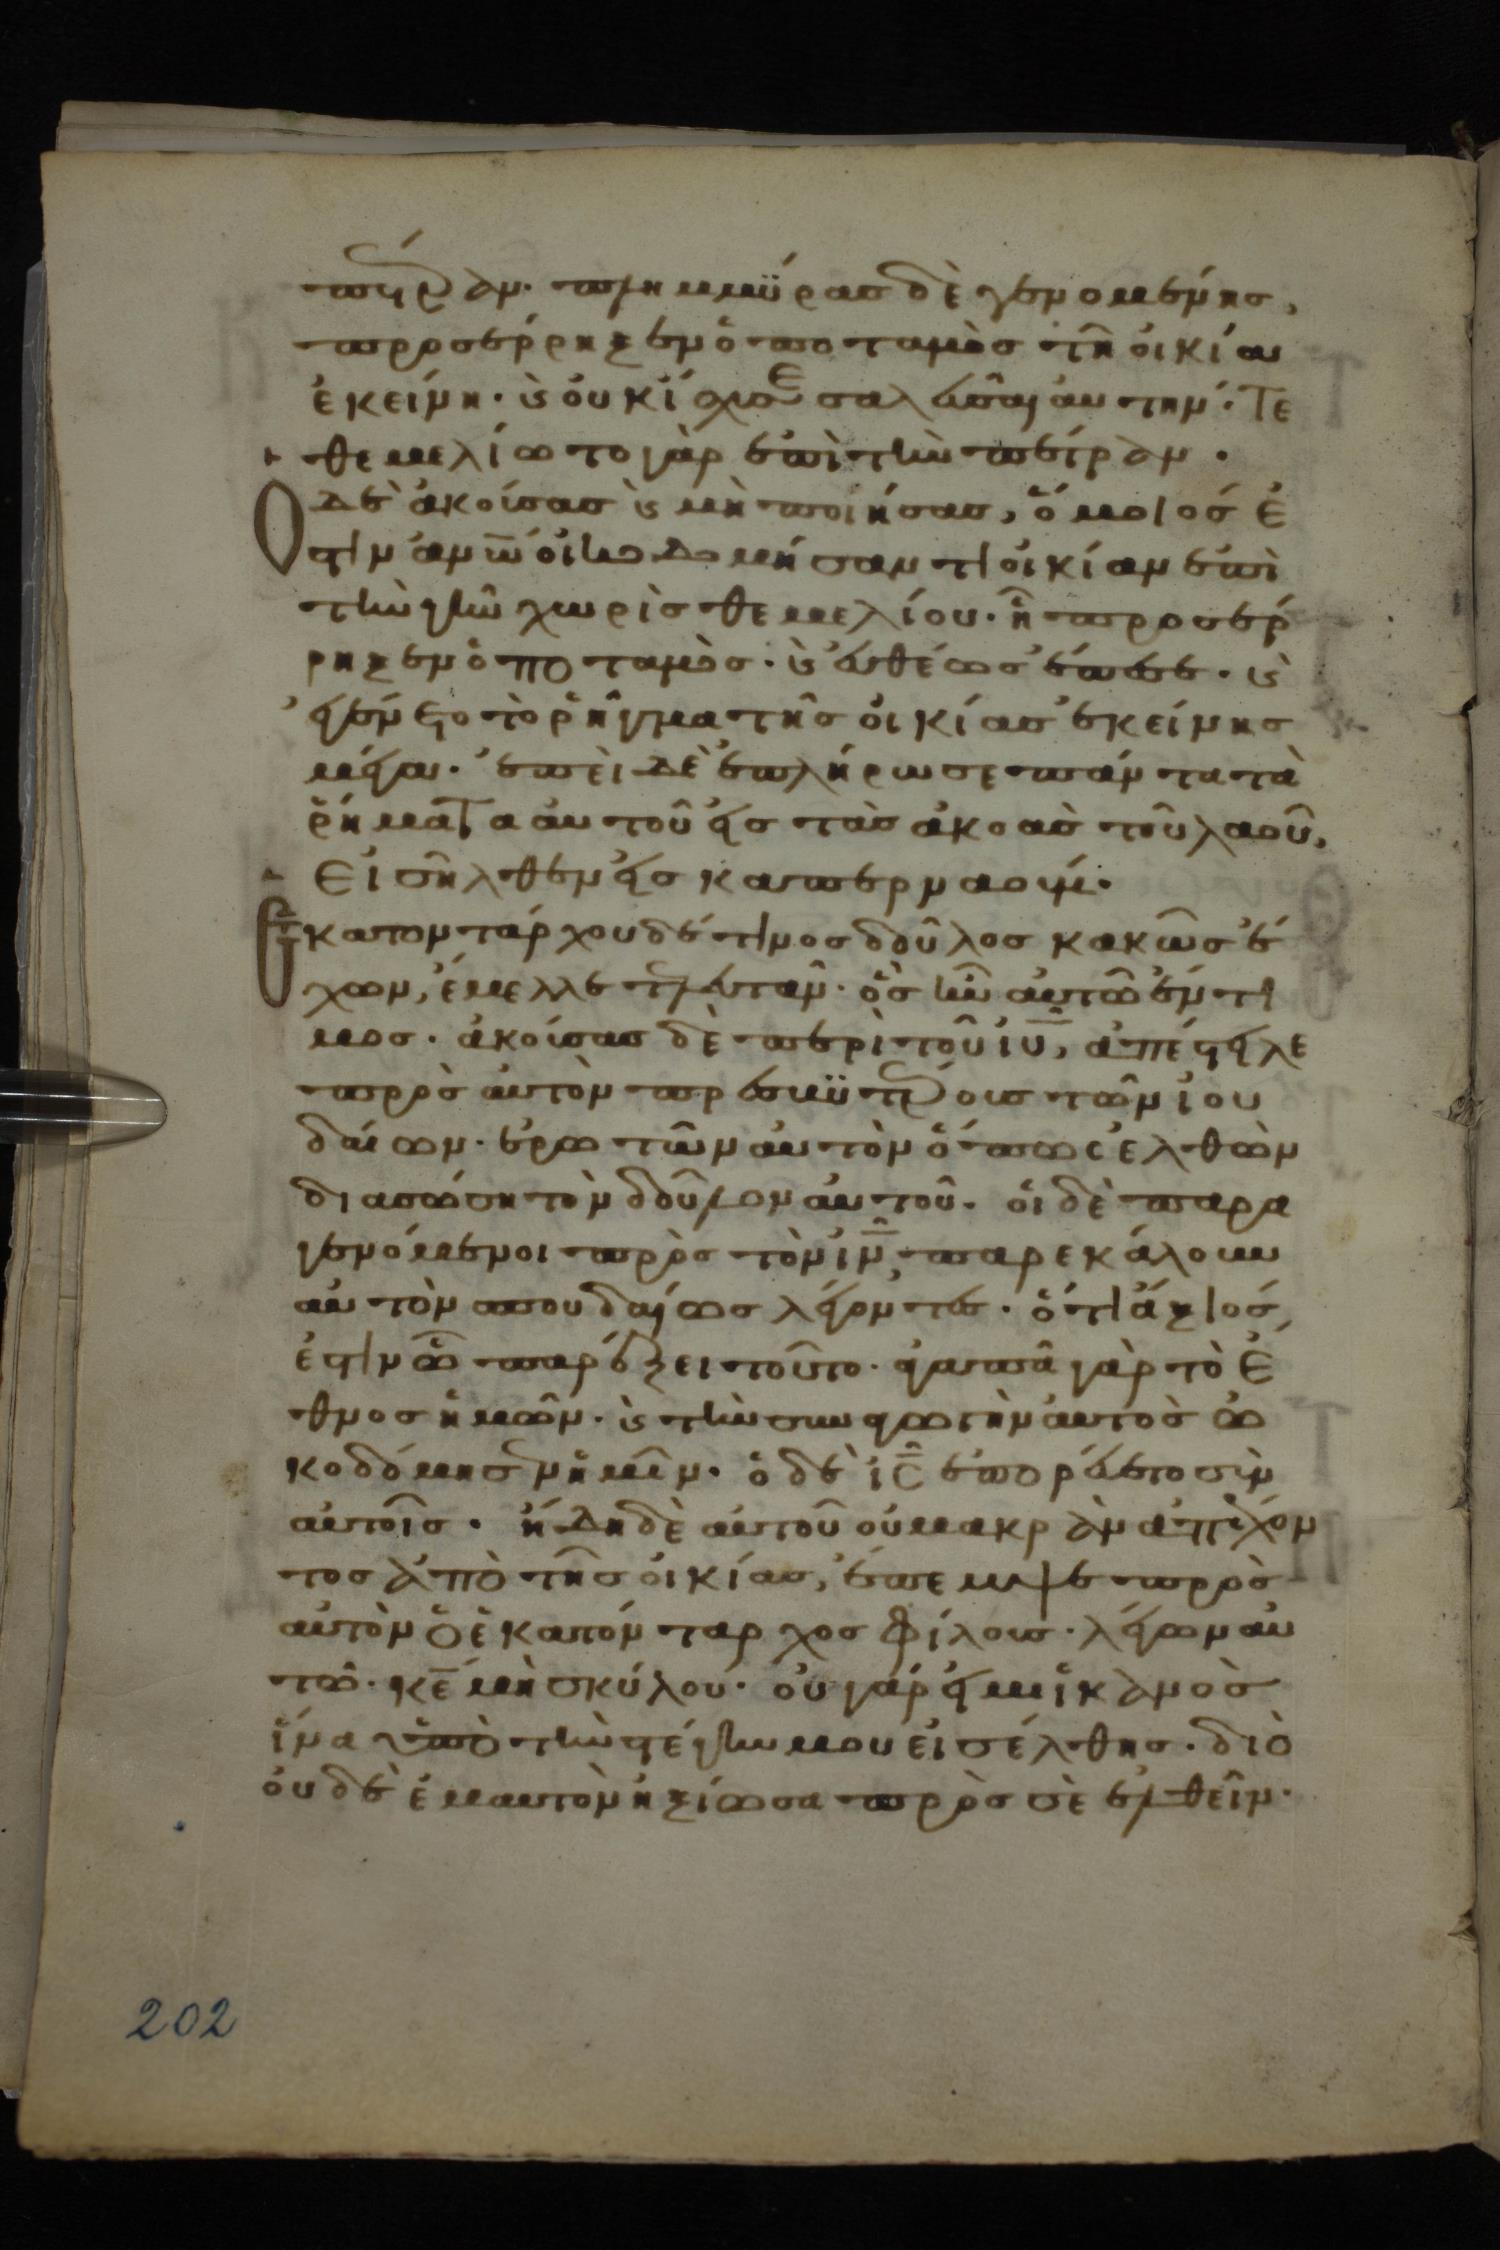 πέτραν· πλημμύρας δὲ γενομένης,
προσέρρηξεν ὁ ποταμὸς τῆ οἰκία
ἐκείνη· καὶ οὐκ ἴσχυσε σαλεῦσαι αὐτήν· τε
θεμελίωτο γὰρ ἐπὶ τὴν πέτραν·
Ὁ δὲ ἀκούσας καὶ μὴ ποιήσας, ὅμοιός ἐ
στιν ἀνω οἰκοδομήσαντι οἰκίαν ἐπὶ
τὴν γῆν χωρὶς θεμελίου· ἧ προσέρ
ρηξεν ὁ ποταμὸς· καὶ εὐθέως ἔπεσε· καὶ
ἐγένετο τὸ ῥῆγμα τῆς οἰκίας ἐκείνης
μέγα· ἐπεὶ δὲ ἐπλήρωσε πάντα τὰ
ῥήματα αὐτοῦ εἰς τὰς ἀκοὰς τοῦ λαοῦ,
εἰσῆλθεν εἰς καπερναούμ·
Ἑκατοντάρχου δέ τινος δοῦλος κακῶς ἔ
χων, ἔμελλε τελευτᾶν· ὃς ἦν αὐτῶ ἔντι
μος· ἀκούσας δὲ περὶ τοῦ ιυ, ἀπέστειλε
πρὸς αὐτὸν πρεσβυτέρους τῶν ἰου
δαίων· ἐρωτῶν αὐτὸν ὅπως ἐλθὼν
διασώση τὸν δοῦλον αὐτοῦ· οἱ δὲ παρα
γενόμενοι πρὸς τὸν ιν, παρεκάλουν
αὐτὸν σπουδαίως λέγοντες· ὅτι ἄξιός
ἐστιν ὧ παρέξει τοῦτο· ἀγαπᾶ γὰρ τὸ ἔ
θνος ἡμῶν· καὶ τὴν συναγωγὴν αὐτὸς ὠ
κοδόμησεν ἡμῖν· ὁ δὲ ις ἐπορεύετο σὺν
αὐτοῖς· ἤδη δὲ αὐτοῦ οὐ μακρὰν ἀπέχον
τος ἀπὸ τῆς οἰκίας, ἔπεμψε πρὸς
αὐτὸν ὁ ἑκατόνταρχος φίλους· λέγων αὐ
τῶ· κε μὴ σκύλλου· οὐ γάρ εἰμι ἱκανὸς
ἵνα ὑπὸ τὴν στέγην μου εἰσέλθης· διὸ
οὐδὲ ἐμαυτὸν ἠξίωσα πρὸς σὲ ἐλθεῖν·
202